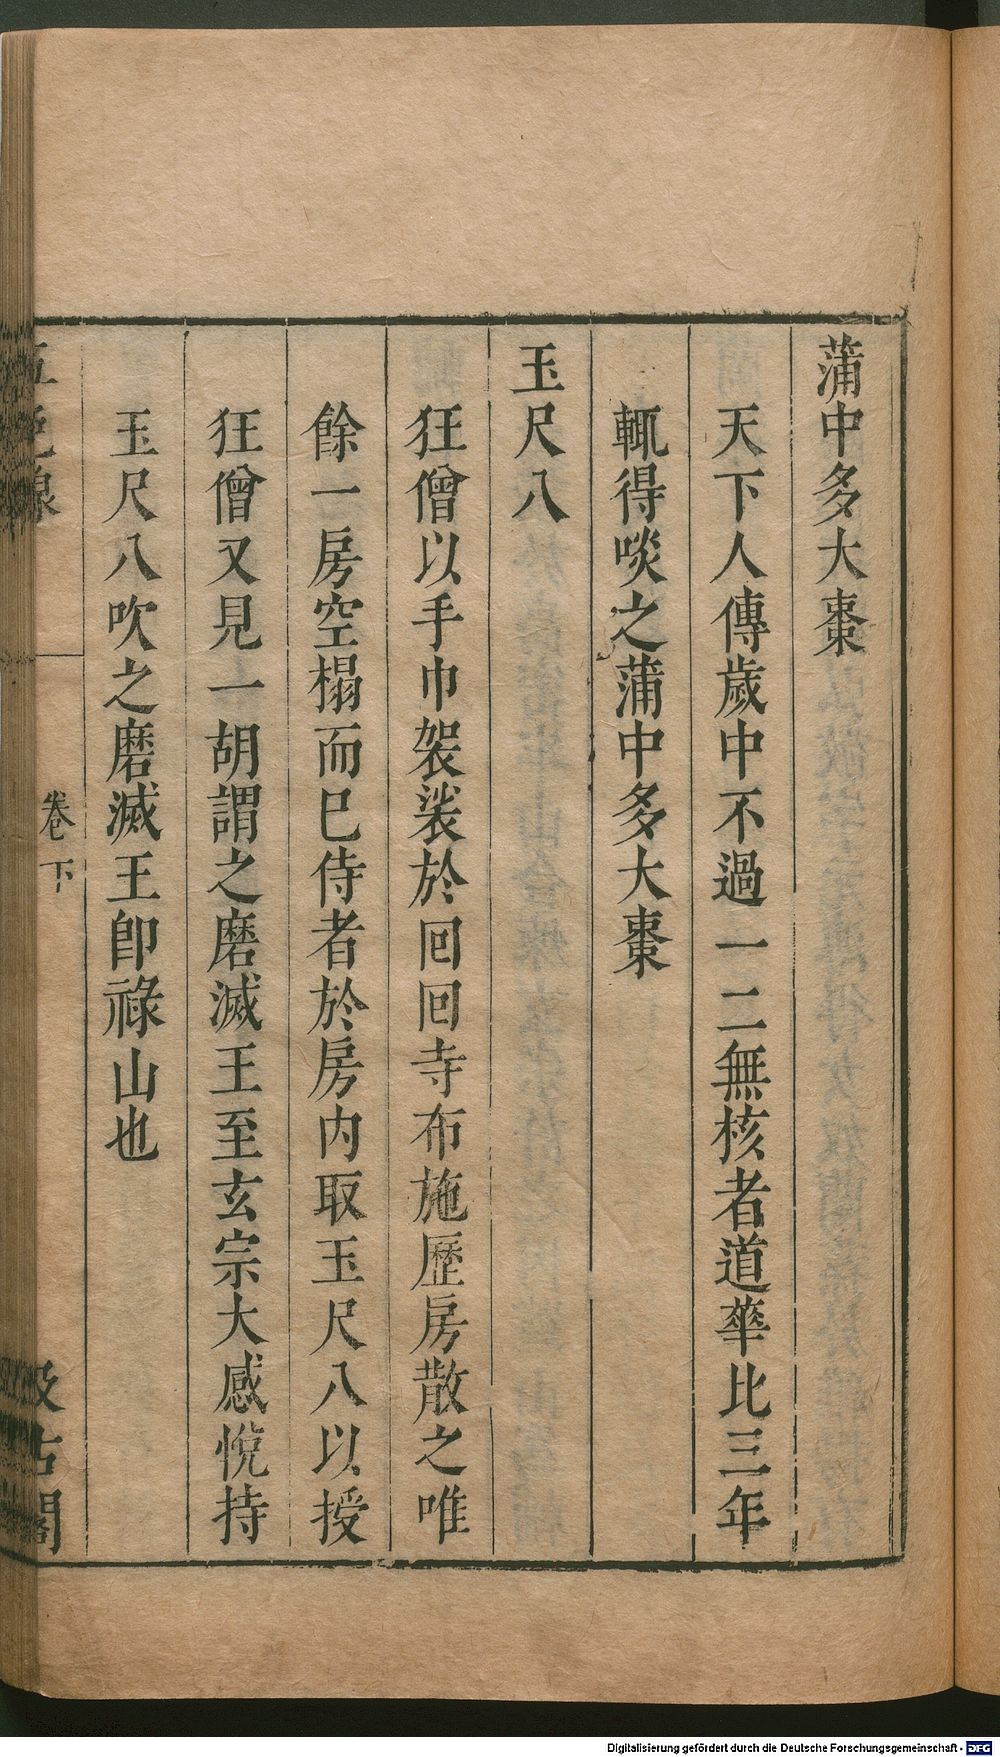 蒲中多大棗
天下人傳歲中不過一二無核者道華比三年
輒得啖之蒲中多大棗
玉尺八
狂僧以手巾袈裟於回回寺布施歷房散之唯
餘一房空榻而已侍者於房内取玉尺八以授
狂僧又見一胡謂之磨滅王至玄宗大感悅持
玉尺八吹之磨滅王卽祿山也
五色線
卷下
汲古閣
Digitalisierung gefördert durch die Deutsche Forschungsgemeinschaft - DFG